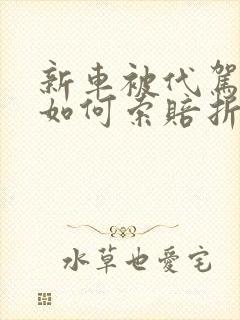 新車被代駕
如何索賠折
水草也愛宅